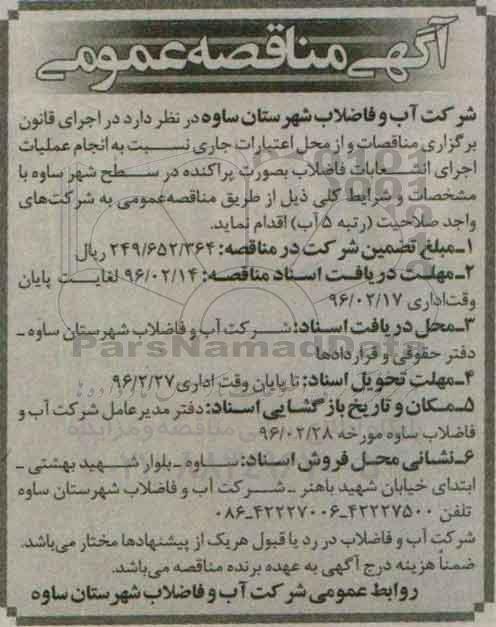 آگهی مناقصه عمومی
شرکت آب و فاضلاب شهرستان ساوه در نظر دارد در اجرای قانون
برگزاری مناقصات و از محل اعتبارات جاری نسبت به انجام عملیات
اجرای انشعابات فاضلاب بصورت پراکنده در سطح شهر ساوه با
مشخصات و شرایط کلی ذیل از طریق مناقصه عمومی به شرکت‌های
واجد صلاحیت (رتبه ۵ آب) اقدام نماید.
۱ـ مبلغ تضمین شرکت در مناقصه: ۲۴۹/۶۵۲/۳۶۴ ریال
۲ـ مهلت دریافت اسناد مناقصه: ۹۶/۰۲/۱۴ لغایت پایان
وقت اداری ۹۶/۰۲/۱۷
۳ـ محل دریافت اسناد: شرکت آب و فاضلاب شهرستان ساوه ـ
ParsNamadData
دفتر حقوقی و قراردادها
۴ـ مهلت تحویل اسناد: تا پایان وقت اداری ۹۶/۲/۲۷
۵ـ مکان و تاریخ بازگشایی اسناد: دفتر مدیرعامل شرکت آب و
فاضلاب ساوه مورخه ۹۶/۰۲/۲۸
۶ـ نشانی محل فروش اسناد: ساوه ـ بلوار شهید بهشتی ـ
ابتدای خیابان شهید باهنر ـ شرکت آب و فاضلاب شهرستان ساوه
تلفن ۴۲۲۲۷۵۰۰ـ۴۲۲۲۷۰۰۶ـ۰۸۶
شرکت آب و فاضلاب در رد یا قبول هریک از پیشنهادها مختار می‌باشد.
ضمناً هزینه درج آگهی به عهده برنده مناقصه می‌باشد.
روابط عمومی شرکت آب و فاضلاب شهرستان ساوه